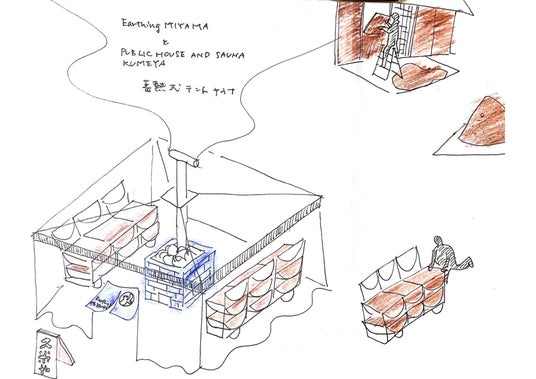 Earthing MIYAMA
と
PUBLIC HOUSE AND SAUNA
KUMEYA
蓄熱式テントサウナ